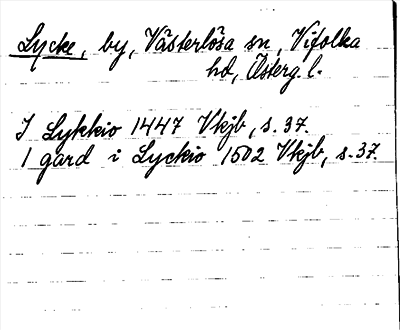 Lycke, by, Västerlösa sn, Vifolka
hd, Österg. l.
I Lykkio 1447 Vkjb, s. 37.
1 gard i Lyckio 1502 Vkjb, s. 37.